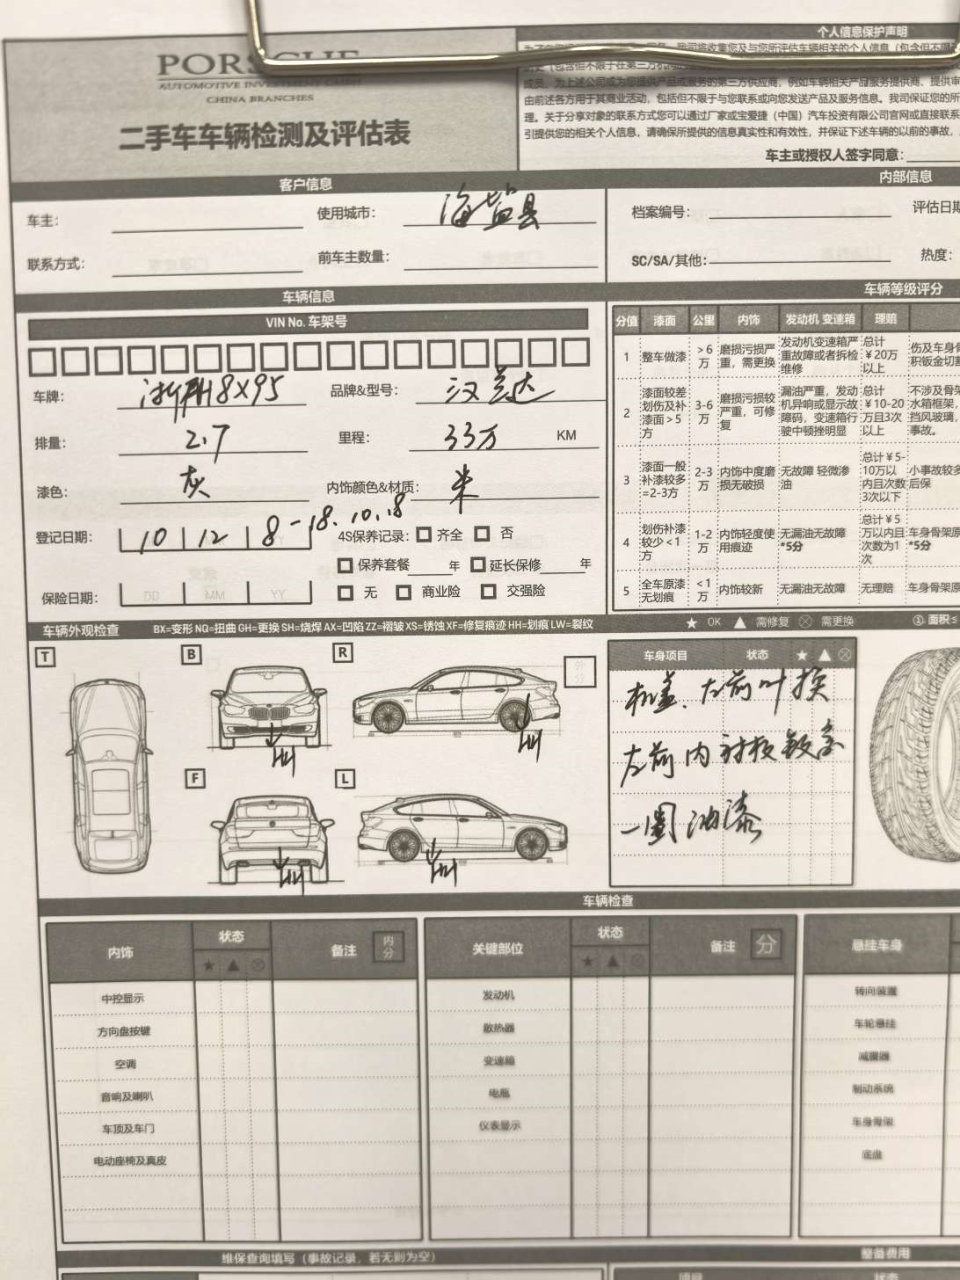 PORSCHE
AUTOMOTIVE INVESTMENT GMBH
CHINA BRANCHES
二手车车辆检测及评估表
个人信息保护声明
成员。为上述公司或为您提供产品或服务的第三方供应商，例如车辆相关产品服务提供商、提供审
由前述各方用于其商业活动，包括但不限于与您联系或向您发送产品及服务信息。我司保证您的所
理。关于分享对象的联系方式您可以通过厂家或宝爱捷（中国）汽车投资有限公司官网或直接联系
引提供您的相关个人信息，请确保所提供的信息真实性和有效性，并保证下述车辆的以前的事故，
车主或授权人签字同意：
客户信息
内部信息
车主： 使用城市： 海盐县
档案编号： 评估日期
联系方式： 前车主数量：
SC/SA/其他： 热度：
车辆信息
车辆等级评分
VIN No. 车架号
分值 漆面 公里 内饰 发动机 变速箱 理赔
1 整车做漆 >6万 磨损污损严重，需更换 发动机变速箱严重故障或者拆检维修 总计￥20万以上 伤及车身骨积钣金切割
2 漆面较差划伤及补漆面>5方 3-6万 磨损污损较严重，可修复 漏油严重，发动机异响或显示故障码，变速箱行驶中顿挫明显 总计￥10-20万且3次以上 不涉及骨架水箱框架，挡风玻璃，事故。
3 漆面一般补漆较多=2-3方 2-3万 内饰中度磨损无破损 无故障 轻微渗油 总计￥5-10万以内且次数3次以下 小事故较多后保
4 划伤补漆较少<1方 1-2万 内饰轻度使用痕迹 无漏油无故障*5分 总计￥5万以内且次数为1次 车身骨架原*5分
5 全车原漆无划痕 <1万 内饰较新 无漏油无故障 无理赔 车身骨架原
车牌： 浙F H8X95 品牌&型号： 汉兰达
排量： 2.7 里程： 33万 KM
漆色： 灰 内饰颜色&材质： 米
登记日期： 10 12 8-18.10.18 4S保养记录： 齐全 否
保养套餐 年 延长保修 年
保险日期： DD MM YY 无 商业险 交强险
车辆外观检查 BX=变形 NQ=扭曲 GH=更换 SH=烧焊 AX=凹陷 ZZ=褶皱 XS=锈蚀 XF=修复痕迹 HH=划痕 LW=裂纹 ★ OK ▲ 需修复 ⊗ 需更换 ①. 面积≤
T B R 分分
HH HH
F L
HH HH
车身项目 状态 ★ ▲ ⊗
机盖、左前叶换
左前内衬板钣金
一圈油漆
车辆检查
内饰 状态 ★ ▲ ⊗ 备注 内分
关键部位 状态 ★ ▲ ⊗ 备注 分
悬挂车身
中控显示 发动机 转向装置
方向盘按键 散热器 车轮悬挂
空调 变速箱 减震器
音响及喇叭 电瓶 制动系统
车顶及车门 仪表显示 车身骨架
电动座椅及真皮 底盘
维保查询填写（事故记录，若无则为空）
整备费用
项目 状态